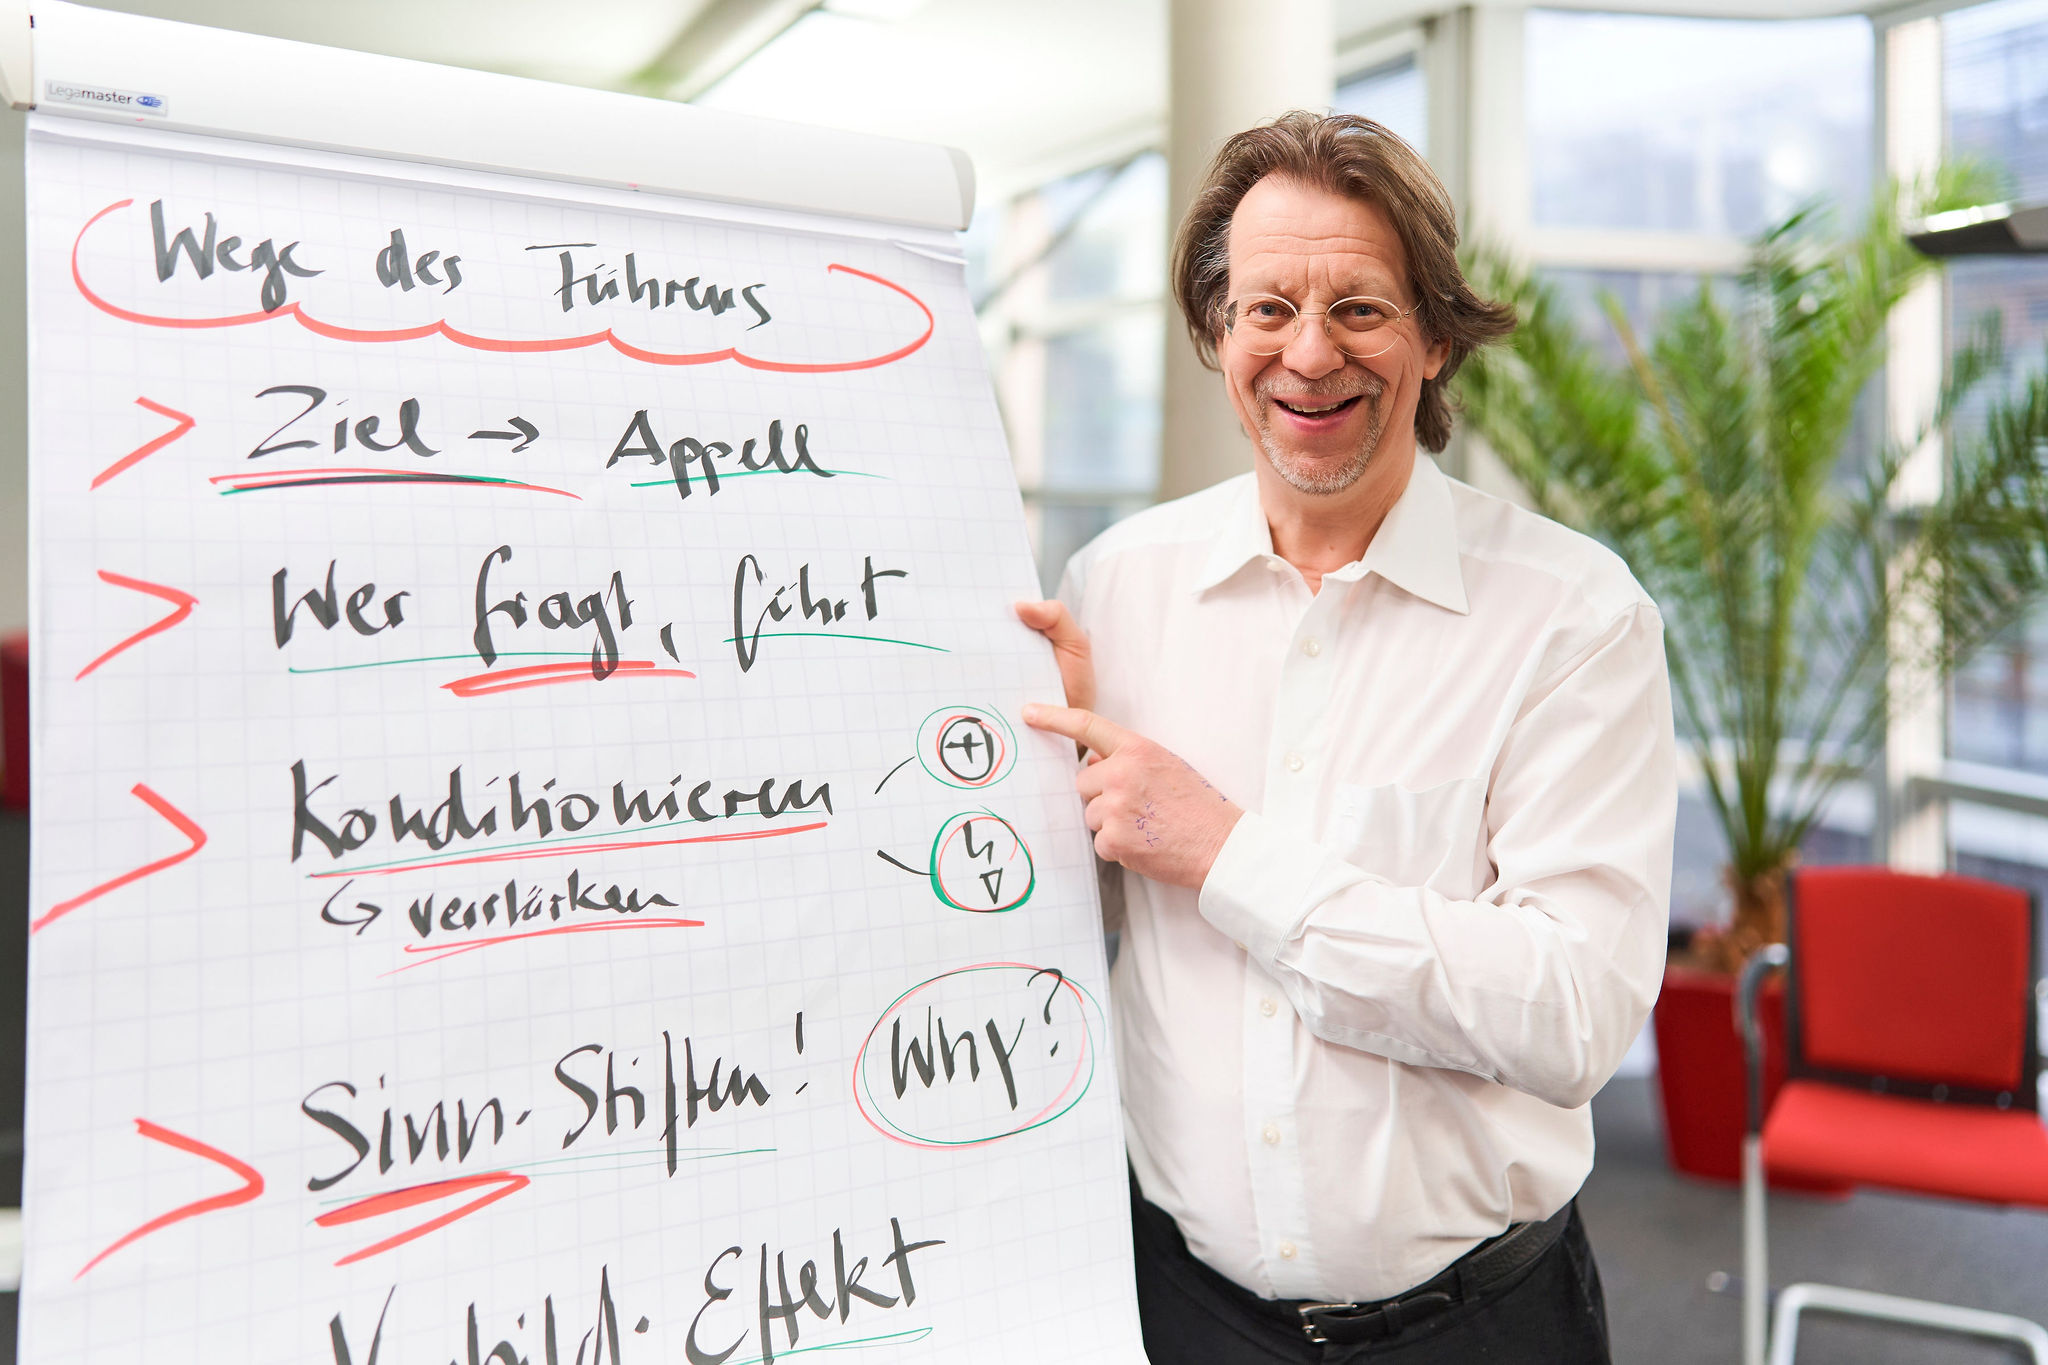 Legamaster
Wege des Führens
> Ziel → Appell
> Wer fragt, führt
> Konditionieren +
↳ verstärken
> Sinn-Stiften! Why?
Vorbild-Effekt